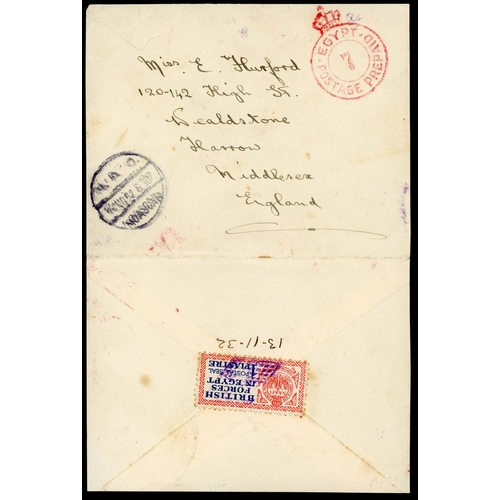 EGYPT
POSTAGE PREPAID
7
Miss E. Hurford
120-142 High St.
Wealdstone
Harrow
Middlesex
England
13-11-32
BRITISH
FORCES
IN EGYPT
POSTAL SEAL
1 PIASTRE